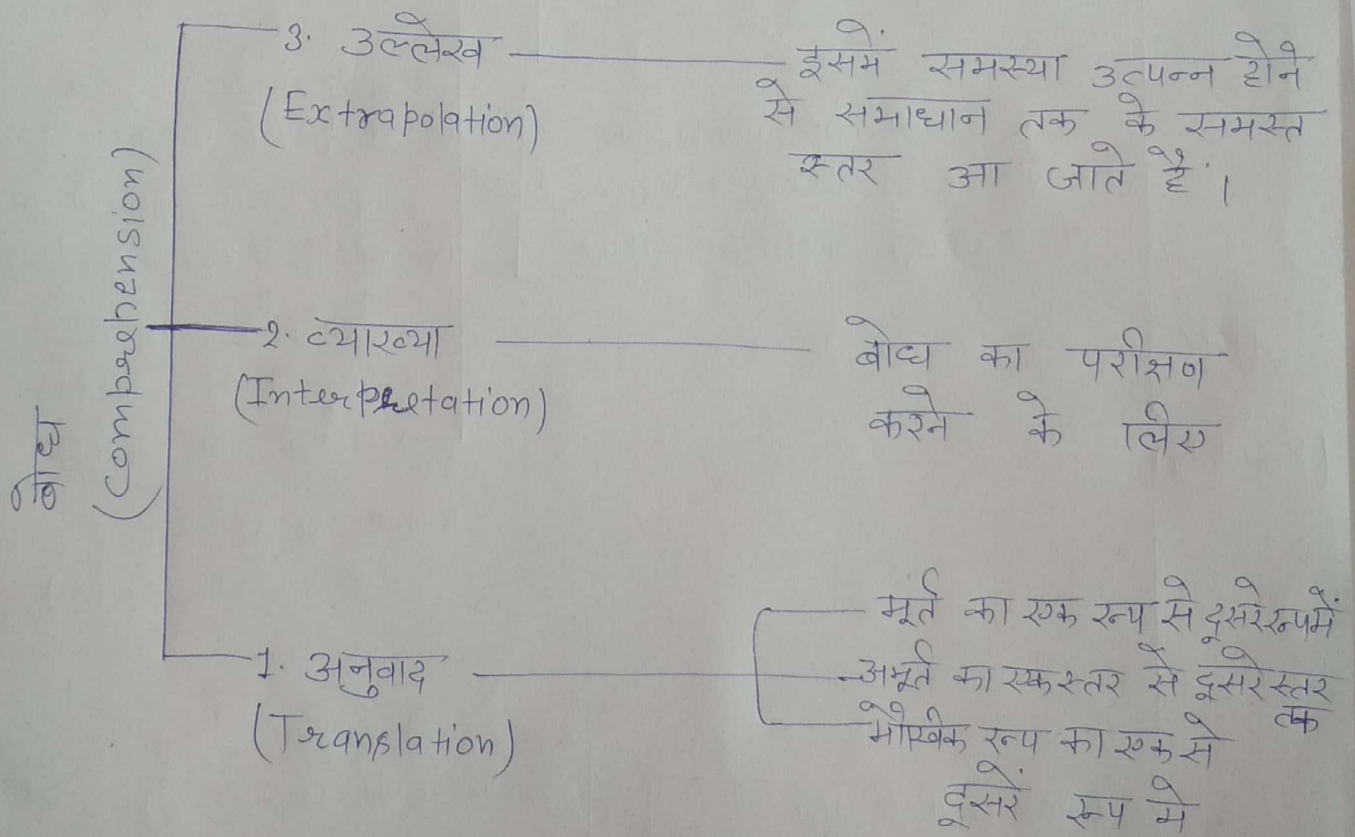 3. उल्लेख
(Extrapolation)
इसमें समस्या उत्पन्न होने
से समाधान तक के समस्त
स्तर आ जाते है।
बोध
(Comprehension)
2. व्याख्या
(Interpretation)
बोध का परीक्षण
करने के लिए
1. अनुवाद
(Translation)
मूर्त का एक रूप से दूसरे रूप में
अमूर्त का एक स्तर से दूसरे स्तर
तक
मौखिक रूप का एक से
दूसरें रूप मे